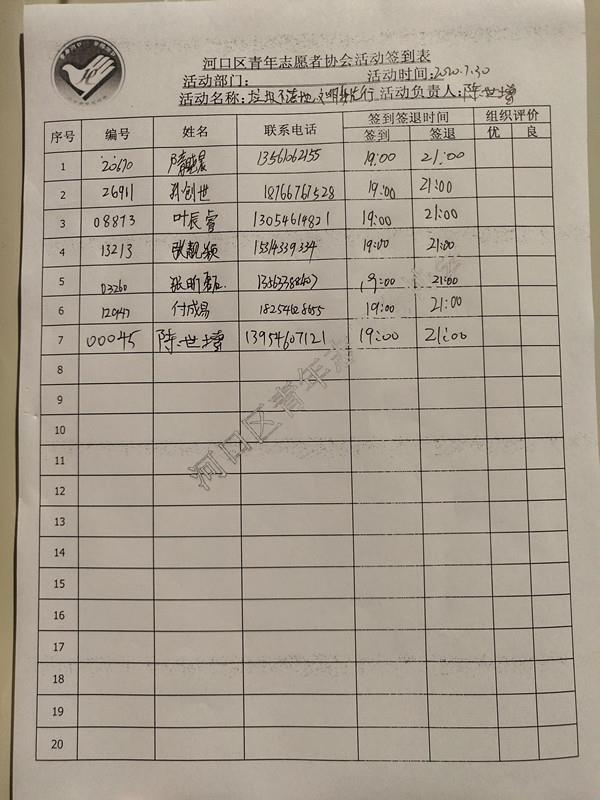 河口区青年志愿者协会活动签到表
活动部门： 活动时间：2020.7.30
活动名称：垃圾不落地，文明我先行 活动负责人：陈世增
序号 编号 姓名 联系电话 签到签退时间 组织评价
签到 签退 优 良
1 20670 13561062155 19:00 21:00
2 26911 孙创世 18766767528 19:00 21:00
3 08873 叶辰睿 13054614821 19:00 21:00
4 13213 张靓颖 15314339334 19:00 21:00
5 03260 张昕磊 19:00 21:00
6 付成易 18254628655 19:00 21:00
7 00045 陈世增 13954607121 19:00 21:00
8
9
10
11
12
13
14
15
16
17
18
19
20
河口区青年志